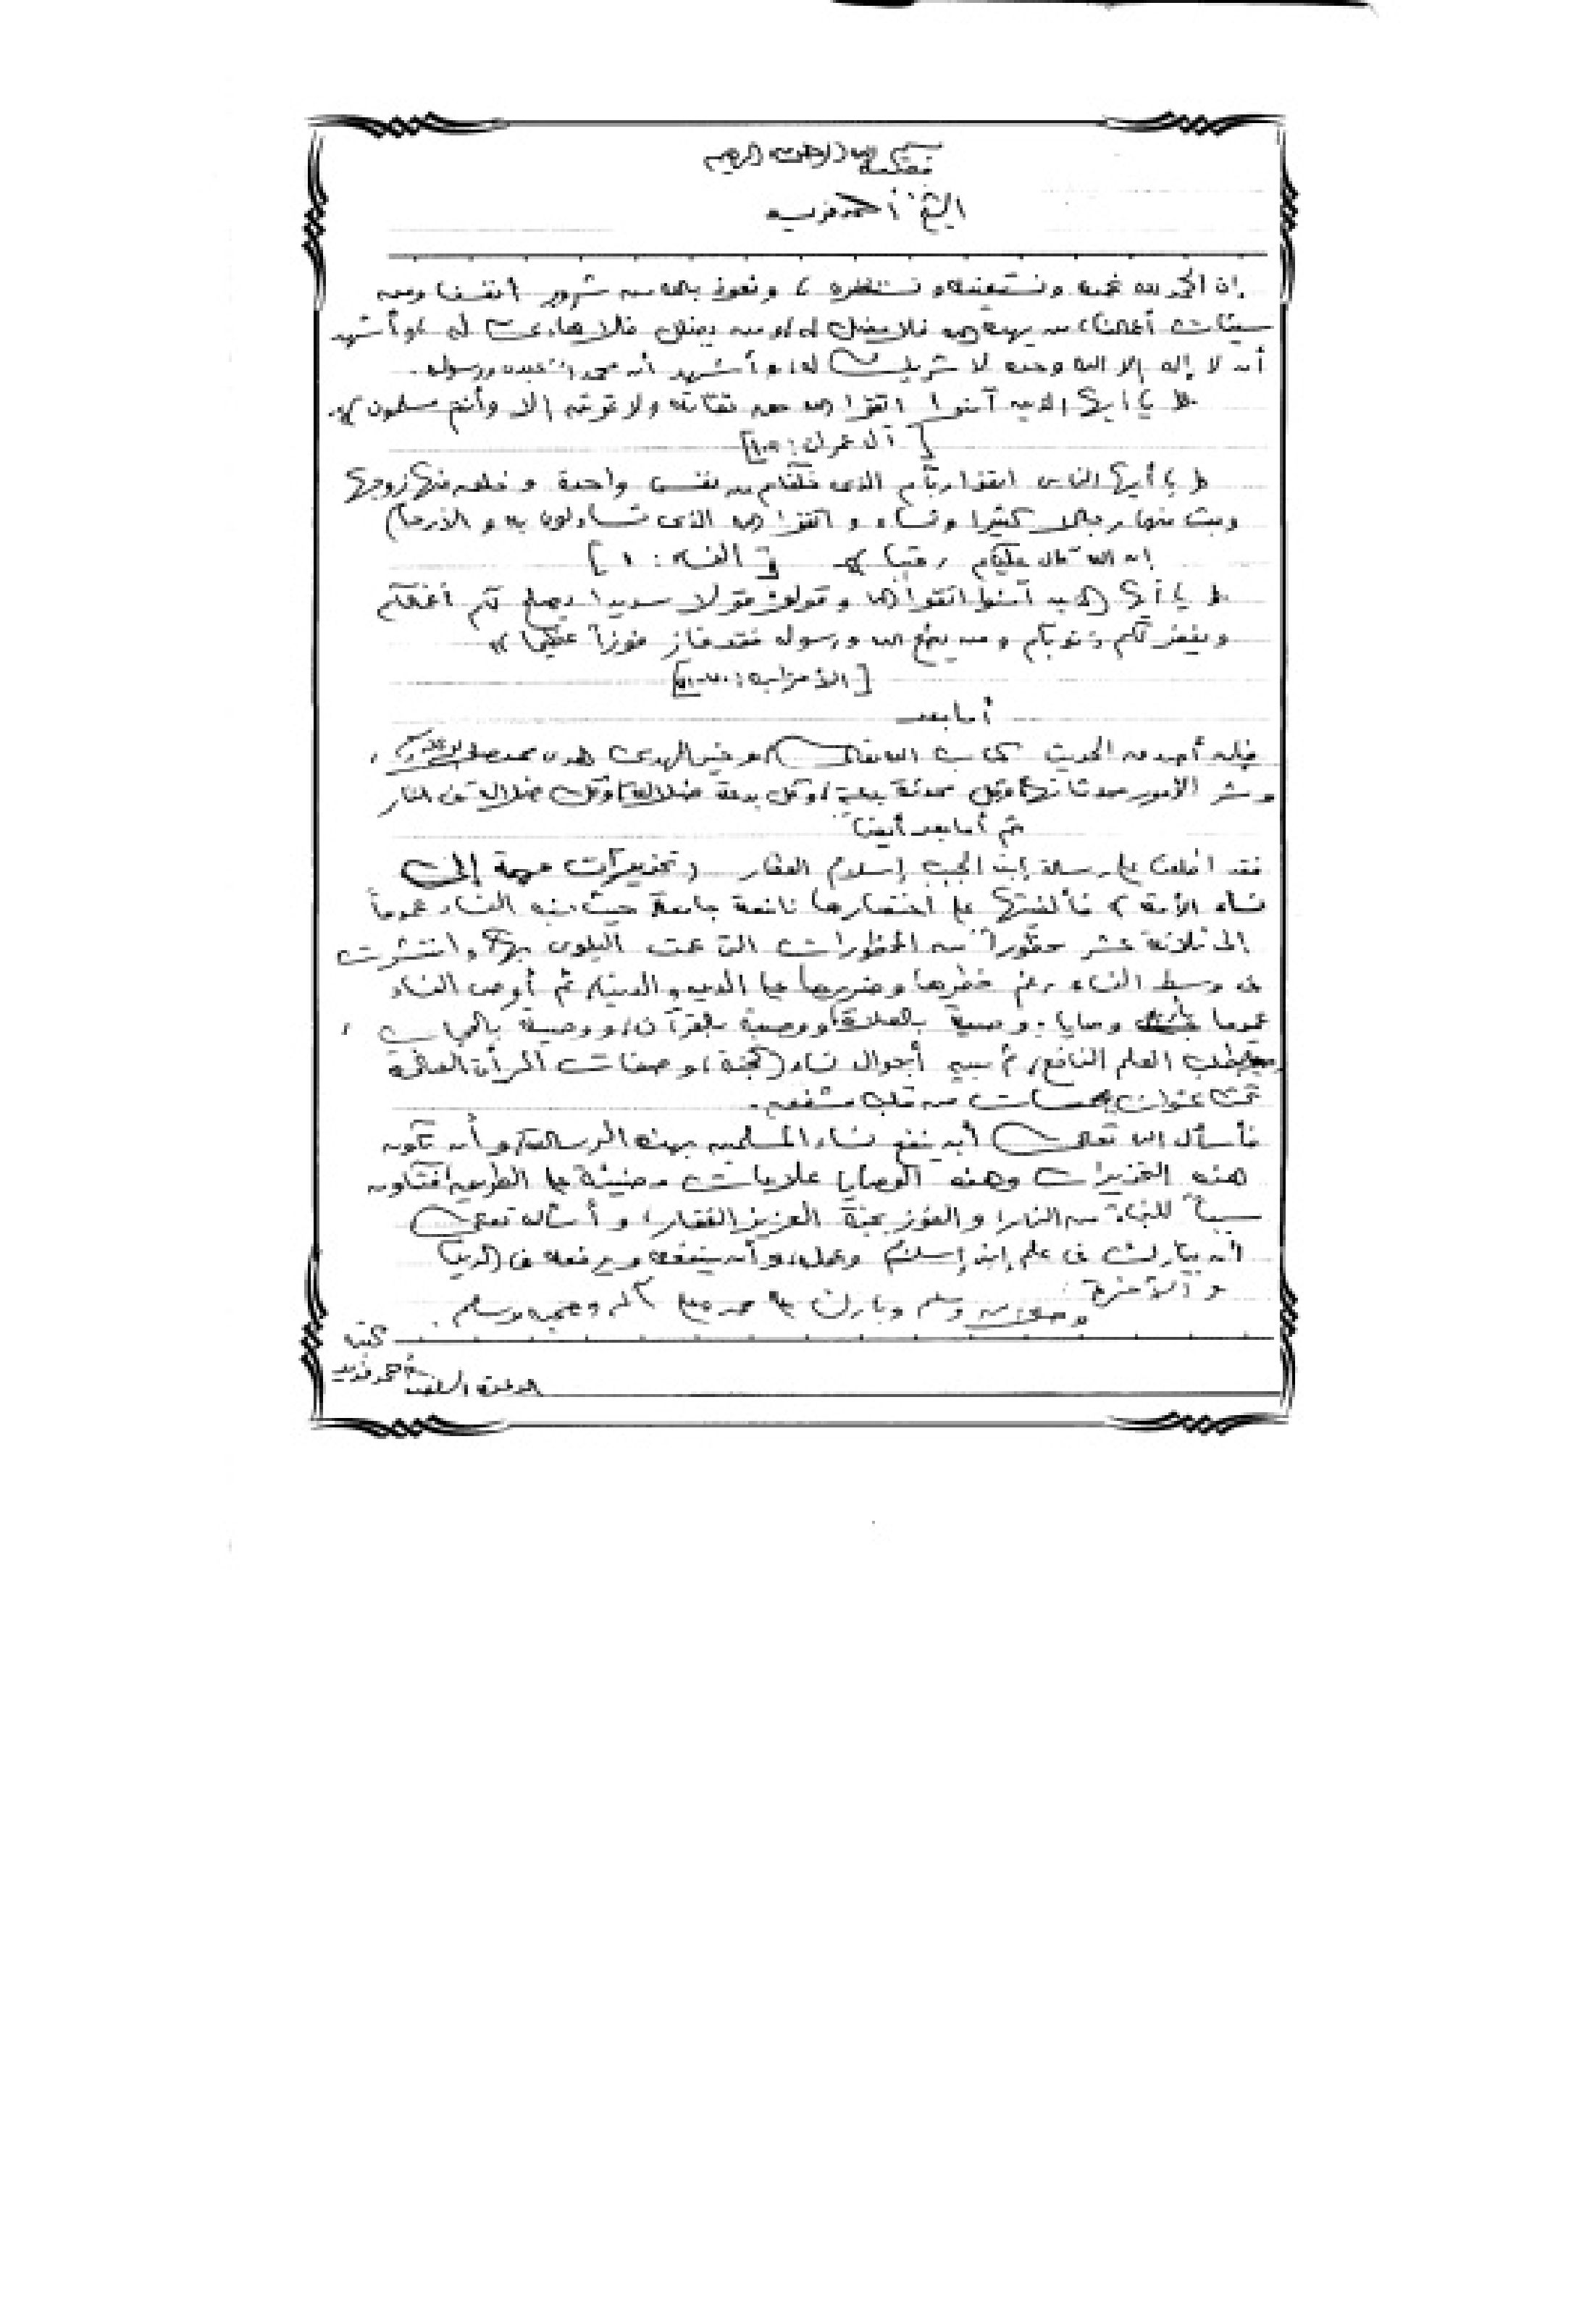 بسم الله الرحمن الرحيم
مقدمة
الشيخ أحمد فريد
إن الحمد لله نحمده ونستعينه ونستغفره، ونعوذ بالله من شرور أنفسنا ومن
سيئات أعمالنا، من يهده الله فلا مضل له، ومن يضلل فلا هادى له، وأشهد
أن لا إله إلا الله وحده لا شريك له، وأشهد أن محمداً عبده ورسوله.
﴿ يا أيها الذين آمنوا اتقوا الله حق تقاته ولا تموتن إلا وأنتم مسلمون ﴾
[آل عمران: ١٠٢]
﴿ يا أيها الناس اتقوا ربكم الذى خلقكم من نفس واحدة وخلق منها زوجها
وبث منهما رجالا كثيرا ونساء واتقوا الله الذى تساءلون به والأرحام
إن الله كان عليكم رقيبا ﴾ [النساء: ١]
﴿ يا أيها الذين آمنوا اتقوا الله وقولوا قولا سديدا يصلح لكم أعمالكم
ويغفر لكم ذنوبكم ومن يطع الله ورسوله فقد فاز فوزاً عظيما ﴾
[الأحزاب: ٧٠-٧١]
أما بعد
فإن أصدق الحديث كتاب الله تعالى، وخير الهدى هدى محمد صلى الله عليه وسلم،
وشر الأمور محدثاتها، وكل محدثة بدعة، وكل بدعة ضلالة، وكل ضلالة فى النار
ثم أما بعد أيضاً
فقد اطلعت على رسالة ابن الحبيب إسلام العقار (تحذيرات مهمة إلى
نساء الأمة) فألفيتها على اختصارها نافعة جامعة حيث نبه النساء عموماً
إلى ثلاثة عشر محظوراً من المحظورات التى عمت البلوى بها، وانتشرت
فى وسط النساء رغم خطرها وضررها على الدين والدنيا، ثم أوصى النساء
عموما وصايا. وصية بالصلاة، ووصية بالقرآن، ووصية بالحجاب،
وبطلب العلم النافع، ثم بين أحوال نساء الجنة، وصفات المرأة الصالحة
تحت عنوان همسات من قلب مشفق.
فأسأل الله تعالى أن ينفع نساء المسلمين بهذه الرسالة، وأن تكون
هذه التحذيرات وهذه الوصايا علامات مضيئة على الطريق، فتكون
سبباً للنجاة من النار، والفوز بجنة العزيز الغفار، وأسأله تعالى
أن يبارك فى علم ابن إسلام وعمله، وأن ينفعه ويرفعه فى الدنيا
والآخرة.
وصلى الله وسلم وبارك على محمد وعلى آله وصحبه وسلم.
كتبه
أحمد فريد
الدعوة السلفية